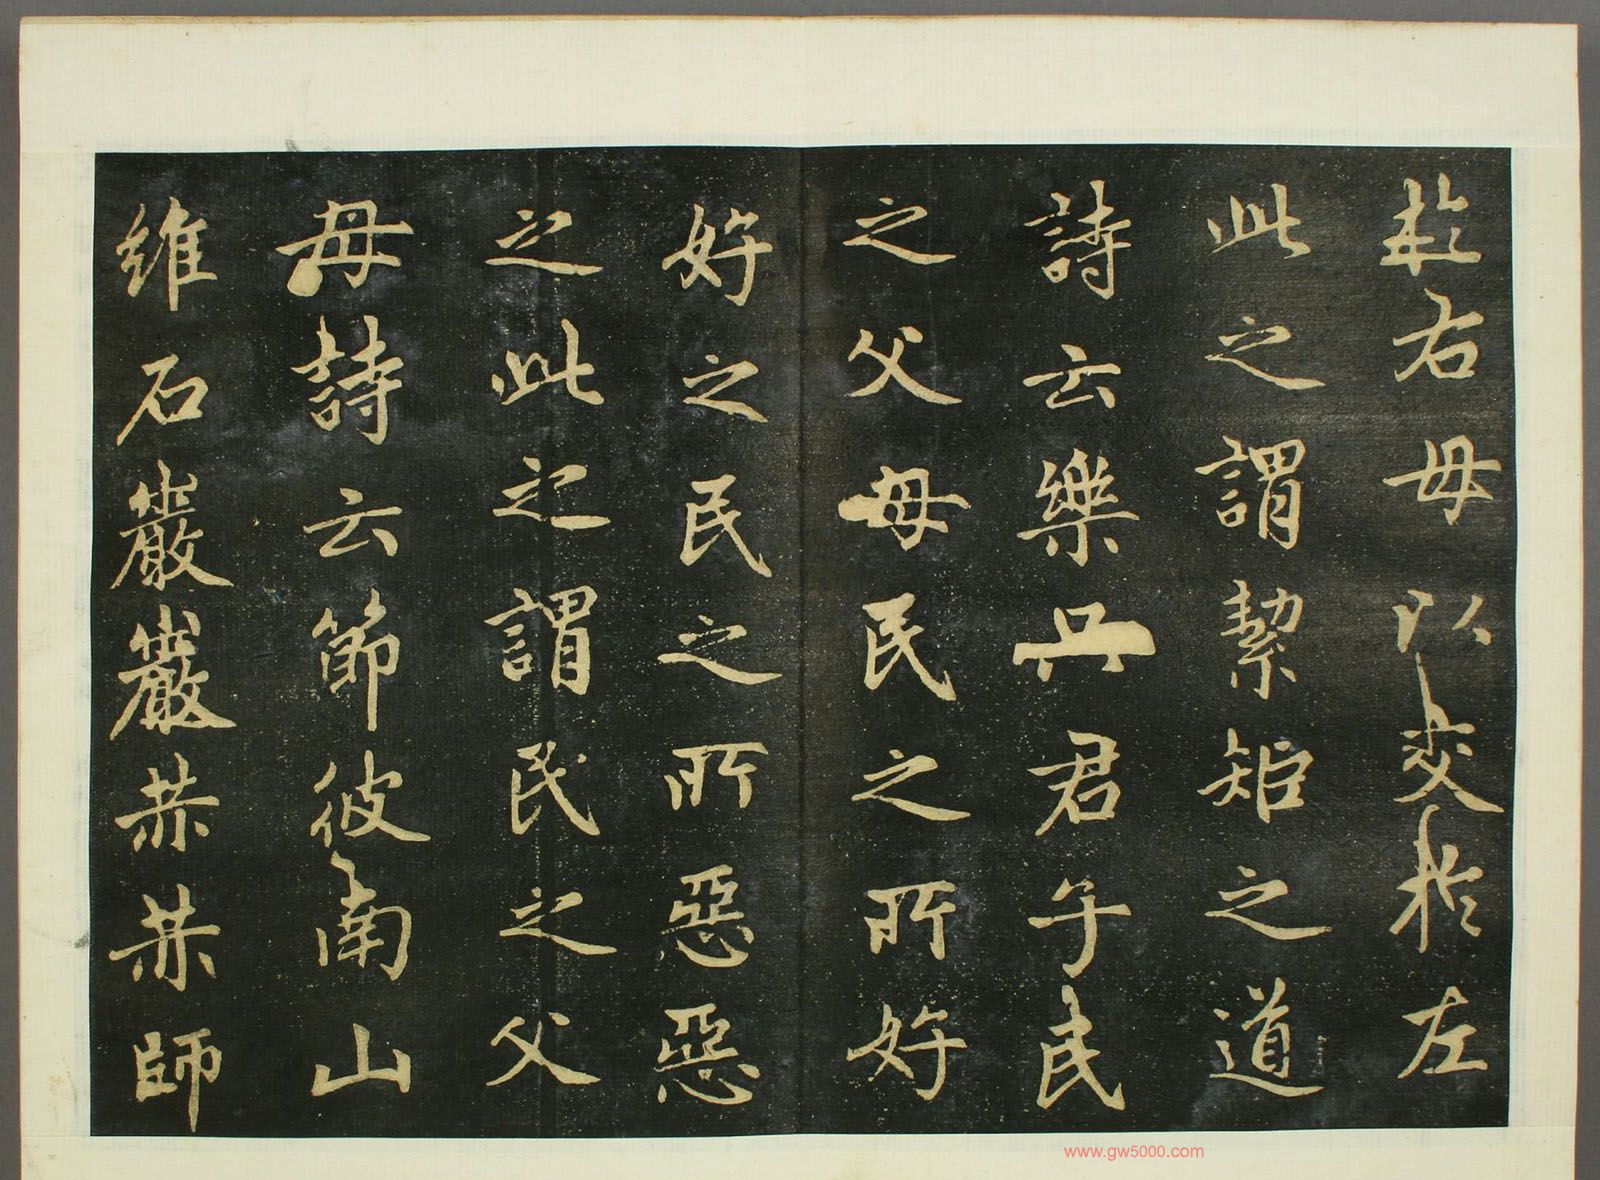 於右毋以交於左
此之謂絜矩之道
詩云樂只君子民
之父母民之所好
好之民之所惡惡
之此之謂民之父
母詩云節彼南山
維石巖巖赫赫師
www.gw5000.com